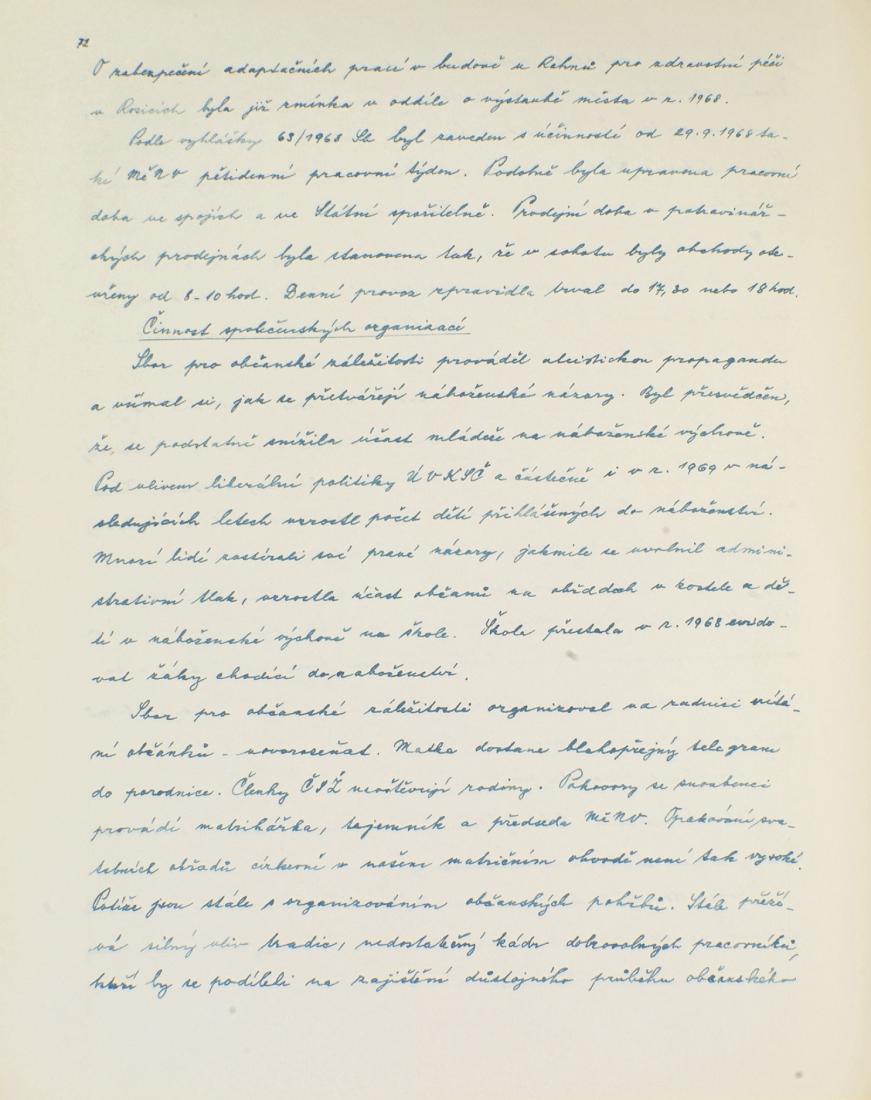 72
O zabezpečení adaptačních prací v budově u Rahnů pro zdravotní péči
v Rosicích byla již zmínka v oddíle o výstavbě města v r. 1968.
Podle vyhlášky 63/1968 Sb byl zaveden s účinností od 29.9.1968 ta-
ké MěNV pětidenní pracovní týden. Podobně byla upravena pracovní
doba ve spojích a ve Státní spořitelně. Prodejní doba v potravinář-
ských prodejnách byla stanovena tak, že v sobotu byly obchody ote-
vřeny od 8-10 hod. Denní provoz zpravidla trval do 17,30 nebo 18 hod.
Činnost společenských organizací
Sbor pro občanské záležitosti prováděl ateistickou propagandu
a všímal si, jak se přetvářejí náboženské názory. Byl přesvědčen,
že, se podstatně snížila účast mládeže na náboženské výchově.
Pod vlivem liberální politiky ÚVKSČ a částečně i v r. 1969 v ná-
sledujících letech vzrostl počet dětí přihlášených do náboženství.
Mnozí lidé zastírali své pravé názory, jakmile se uvolnil admini-
strativní tlak, vzrostla účast občanů na obřddech v kostele a dě-
tí v náboženské výchově na škole. Škola přestala v r. 1968 evido-
vat žáky chodící do náboženství.
Sbor pro občanské záležitosti organizoval na radnici vítá-
ní občánků - novorozeňat. Matka dostane blahopřejný telegram
do porodnice. Členky ČSŽ navštěvují rodiny. Pohovory se snoubenci
provádí matrikářka, tajemník a předseda MěNV. Opakování sva-
tebních obřadů církevně v našem matričním obvodě není tak vysoké.
Potíže jsou stále s organizováním občanských pohřbů. Stále přeží-
vá silný vliv tradic, nedostatečný kádr dobrovolných pracovníků,
kteří by se podíleli na zajištění důstojného průběhu občanského